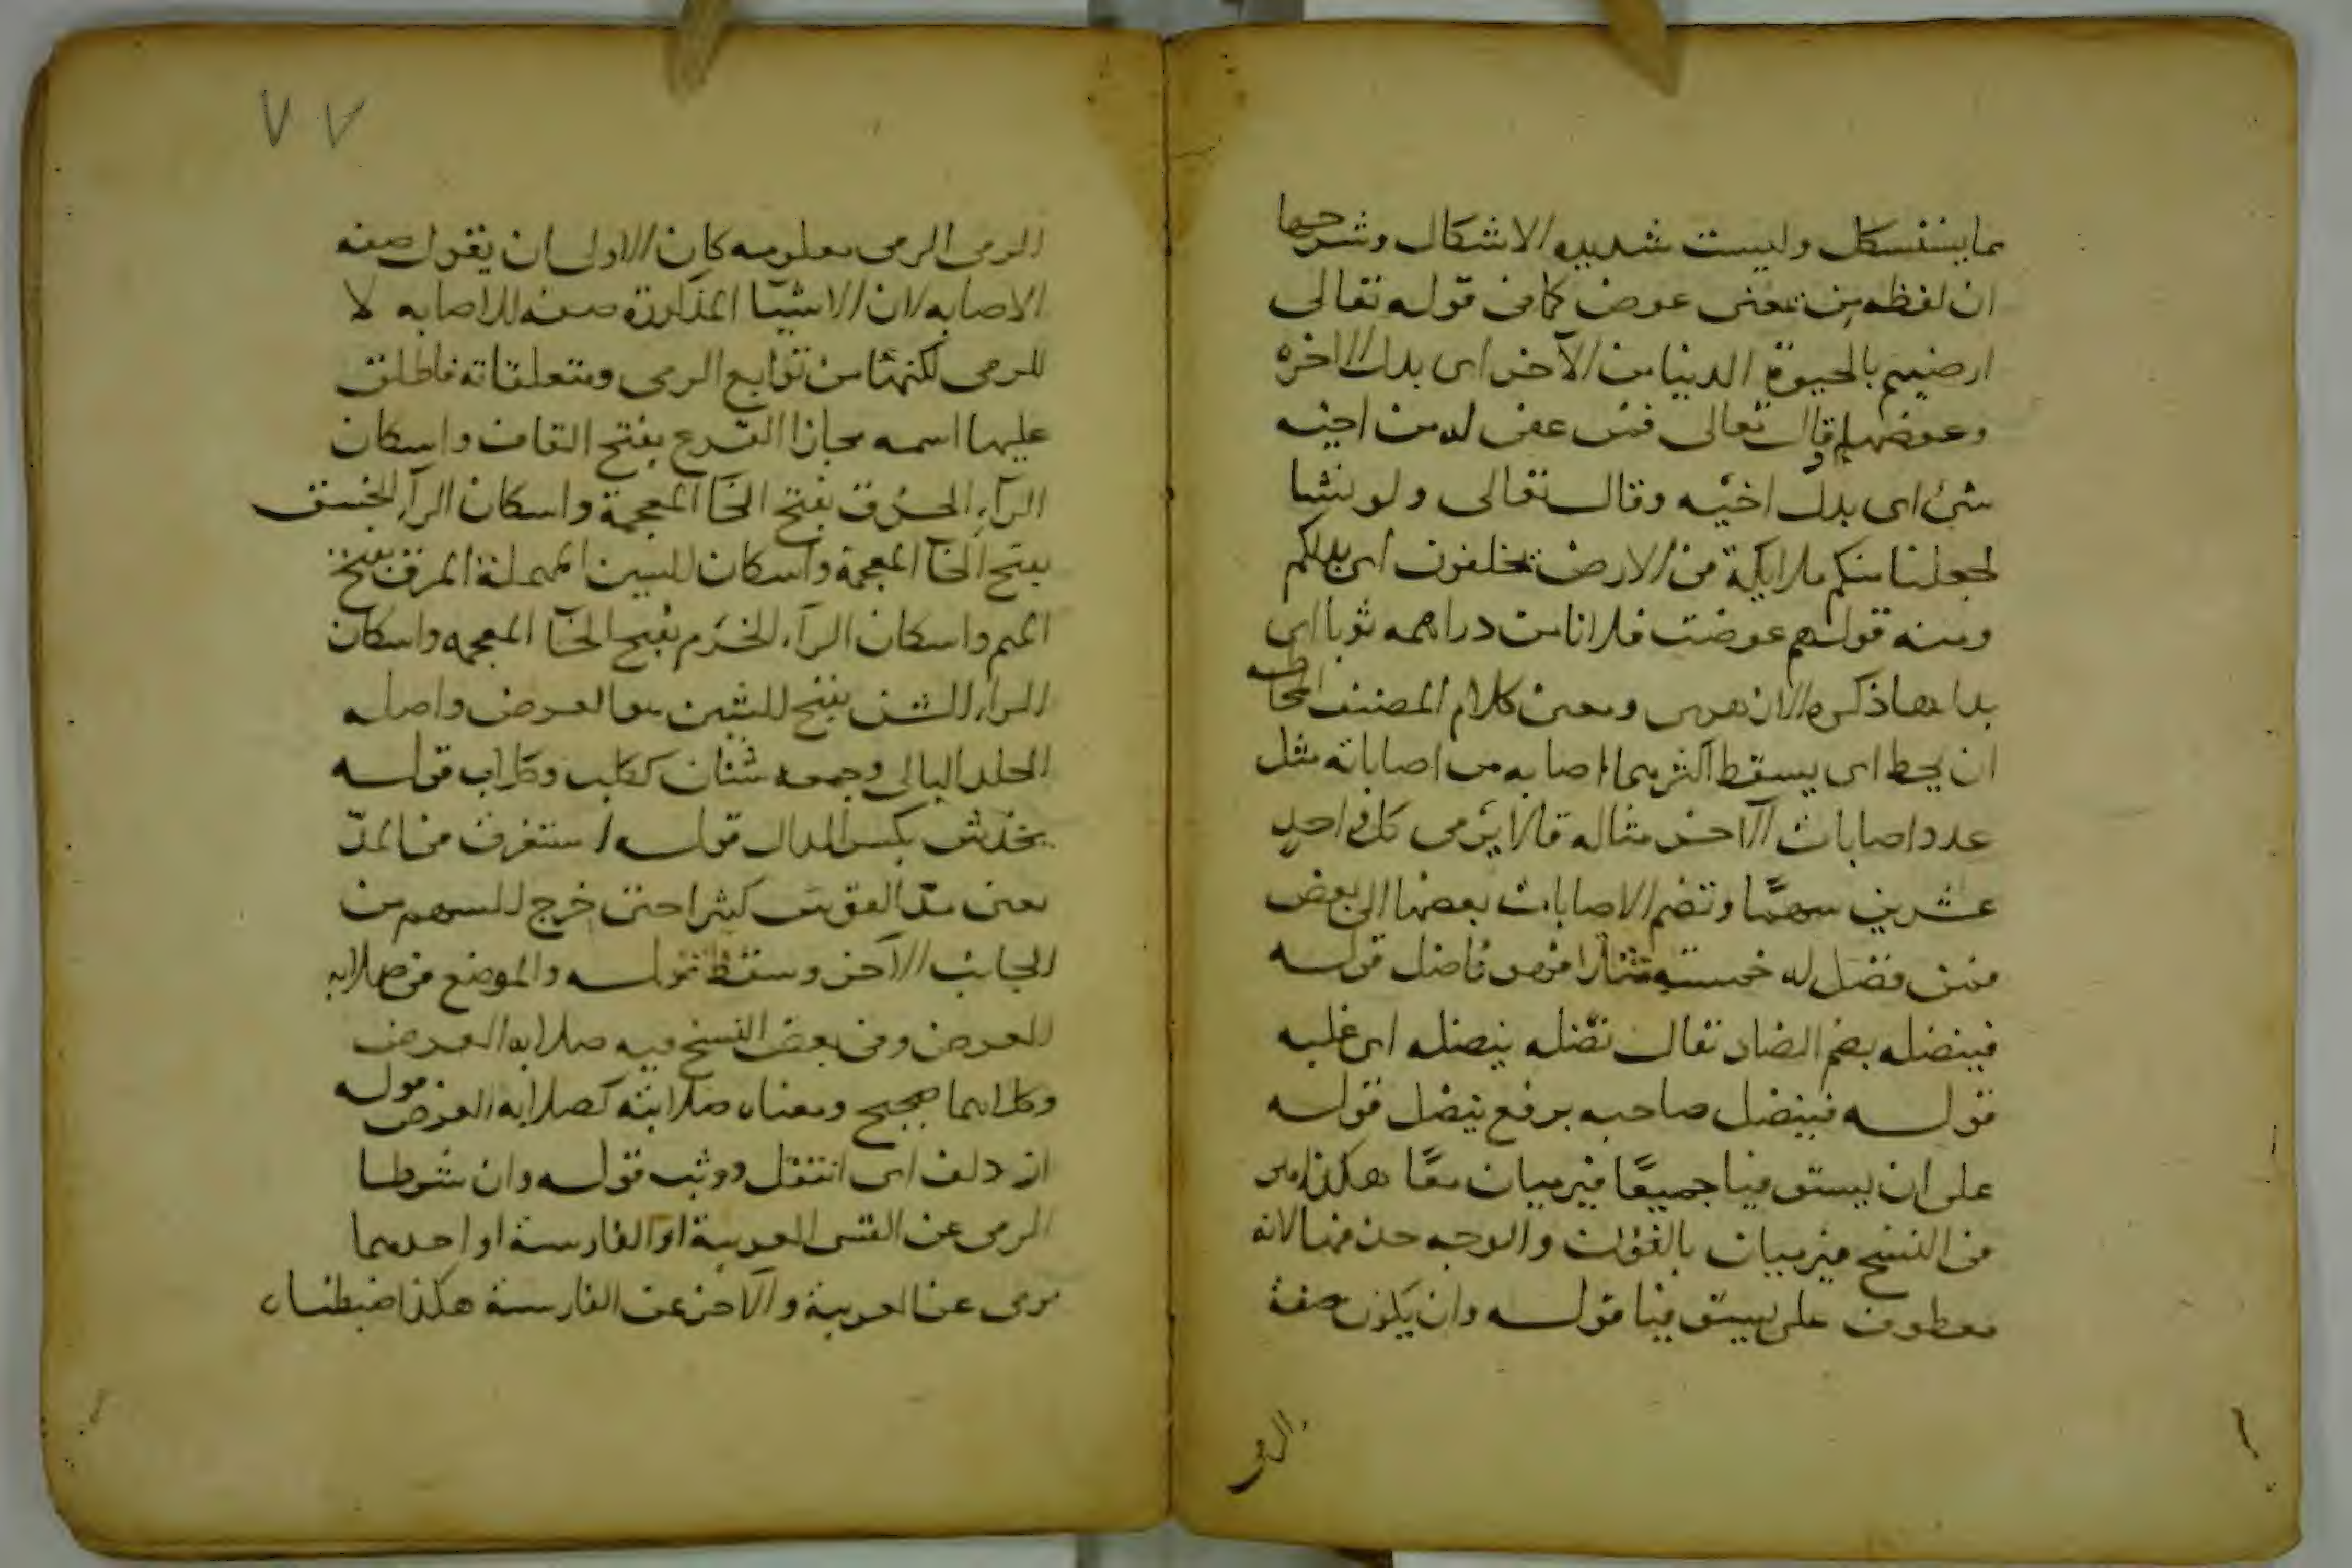 مما يستشكل وليست شديده الاشكال وشرحها
ان لفظه من بمعنى عوض كما في قوله تعالى
ارضيتم بالحيوة الدنيا من الآخره اى بدل الاخره
وعوضها وقال تعالى فمن عفى له من اخيه
شئ اى بدل اخيه وقال تعالى ولو نشا
لجعلنا منكم ملايكة في الارض يخلفون اى بدلكم
ومنه قولهم عوضت فلانا من دراهمه ثوبا اى
بدلها ذكره الازهرى ومعنى كلام المصنف المحاطه
ان يحط اى يسقط اكثرهما اصابه من اصاباته مثل
عدد اصابات الآخر مثاله قالا يرمى كل واحد
عشرين سهمًا وتضم الاصابات بعضها الى بعض
فمن فضل له خمسة مثلا فهو ناضل قوله
فينضله بضم الضاد يقال نضله ينضله اى غلبه
قوله فينضل صاحبه برفع ينضل قوله
على ان يستوفيا جميعًا فيرميان معًا هكذا هو
في النسخ فيرميان بالنون والوجه حذفها لانه
معطوف على يستوفيا قوله وان يكون صفة
الرمى
٧٧
الرمى الرمى معلومه كان الاولى ان يقول صفه
الاصابه لان الاشيا المذكورة صفه للاصابه لا
للرمى لكنها من توابع الرمى ومتعلقاته فاطلق
عليها اسمه مجازا القرع بفتح القاف واسكان
الرآء الخزق بفتح الخآ المعجمة واسكان الزآ الخسق
بفتح الخآ المعجمة واسكان السين المهملة المرق بفتح
الميم واسكان الرآء الخرم بفتح الخآ المعجمه واسكان
الرآء الشن بفتح الشين هو الغرض واصله
الجلد البالى وجمعه شنان ككلب وكلاب قوله
يخدش بكسر الدال قوله استغرق في المدّ
يعنى مدّ القوس كثيرا حتى خرج السهم من
الجانب الآخر وسقط قوله والموضع في صلابه
الغرض وفي بعض النسخ فيه صلابه الغرض
وكلاهما صحيح ومعناه صلابته كصلابه الغرض قوله
ازدلف اى انتقل ووثب قوله وان شرطا
الرمى عن القسى العربية او الفارسية او احدهما
يرمى عن العربية والآخر عن الفارسية هكذا ضبطناه